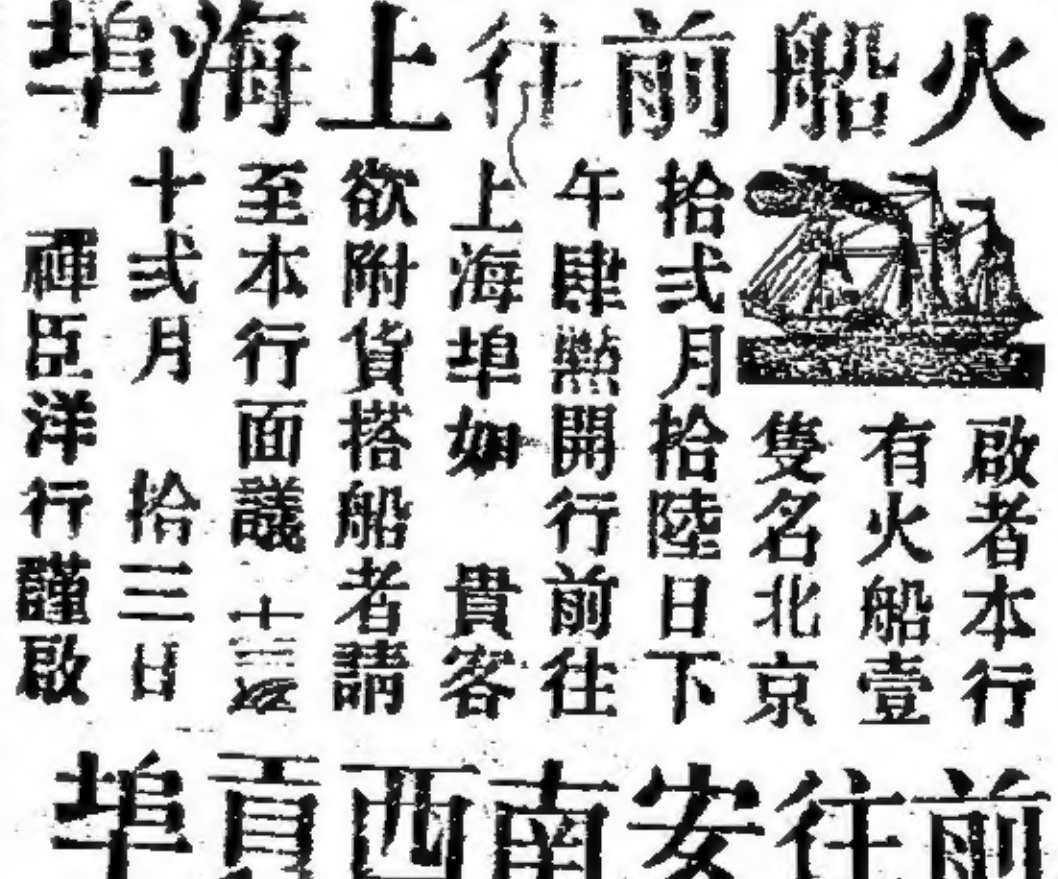 火船前往上海埠
啟者本行
有火船壹
隻名北京
拾弍月拾陸日下
午肆㸃開行前往
上海埠如 貴客
欲附貨搭船者請
至本行面議 十三
十弍月 拾三日
禪臣洋行謹啟
前往安南西貢埠